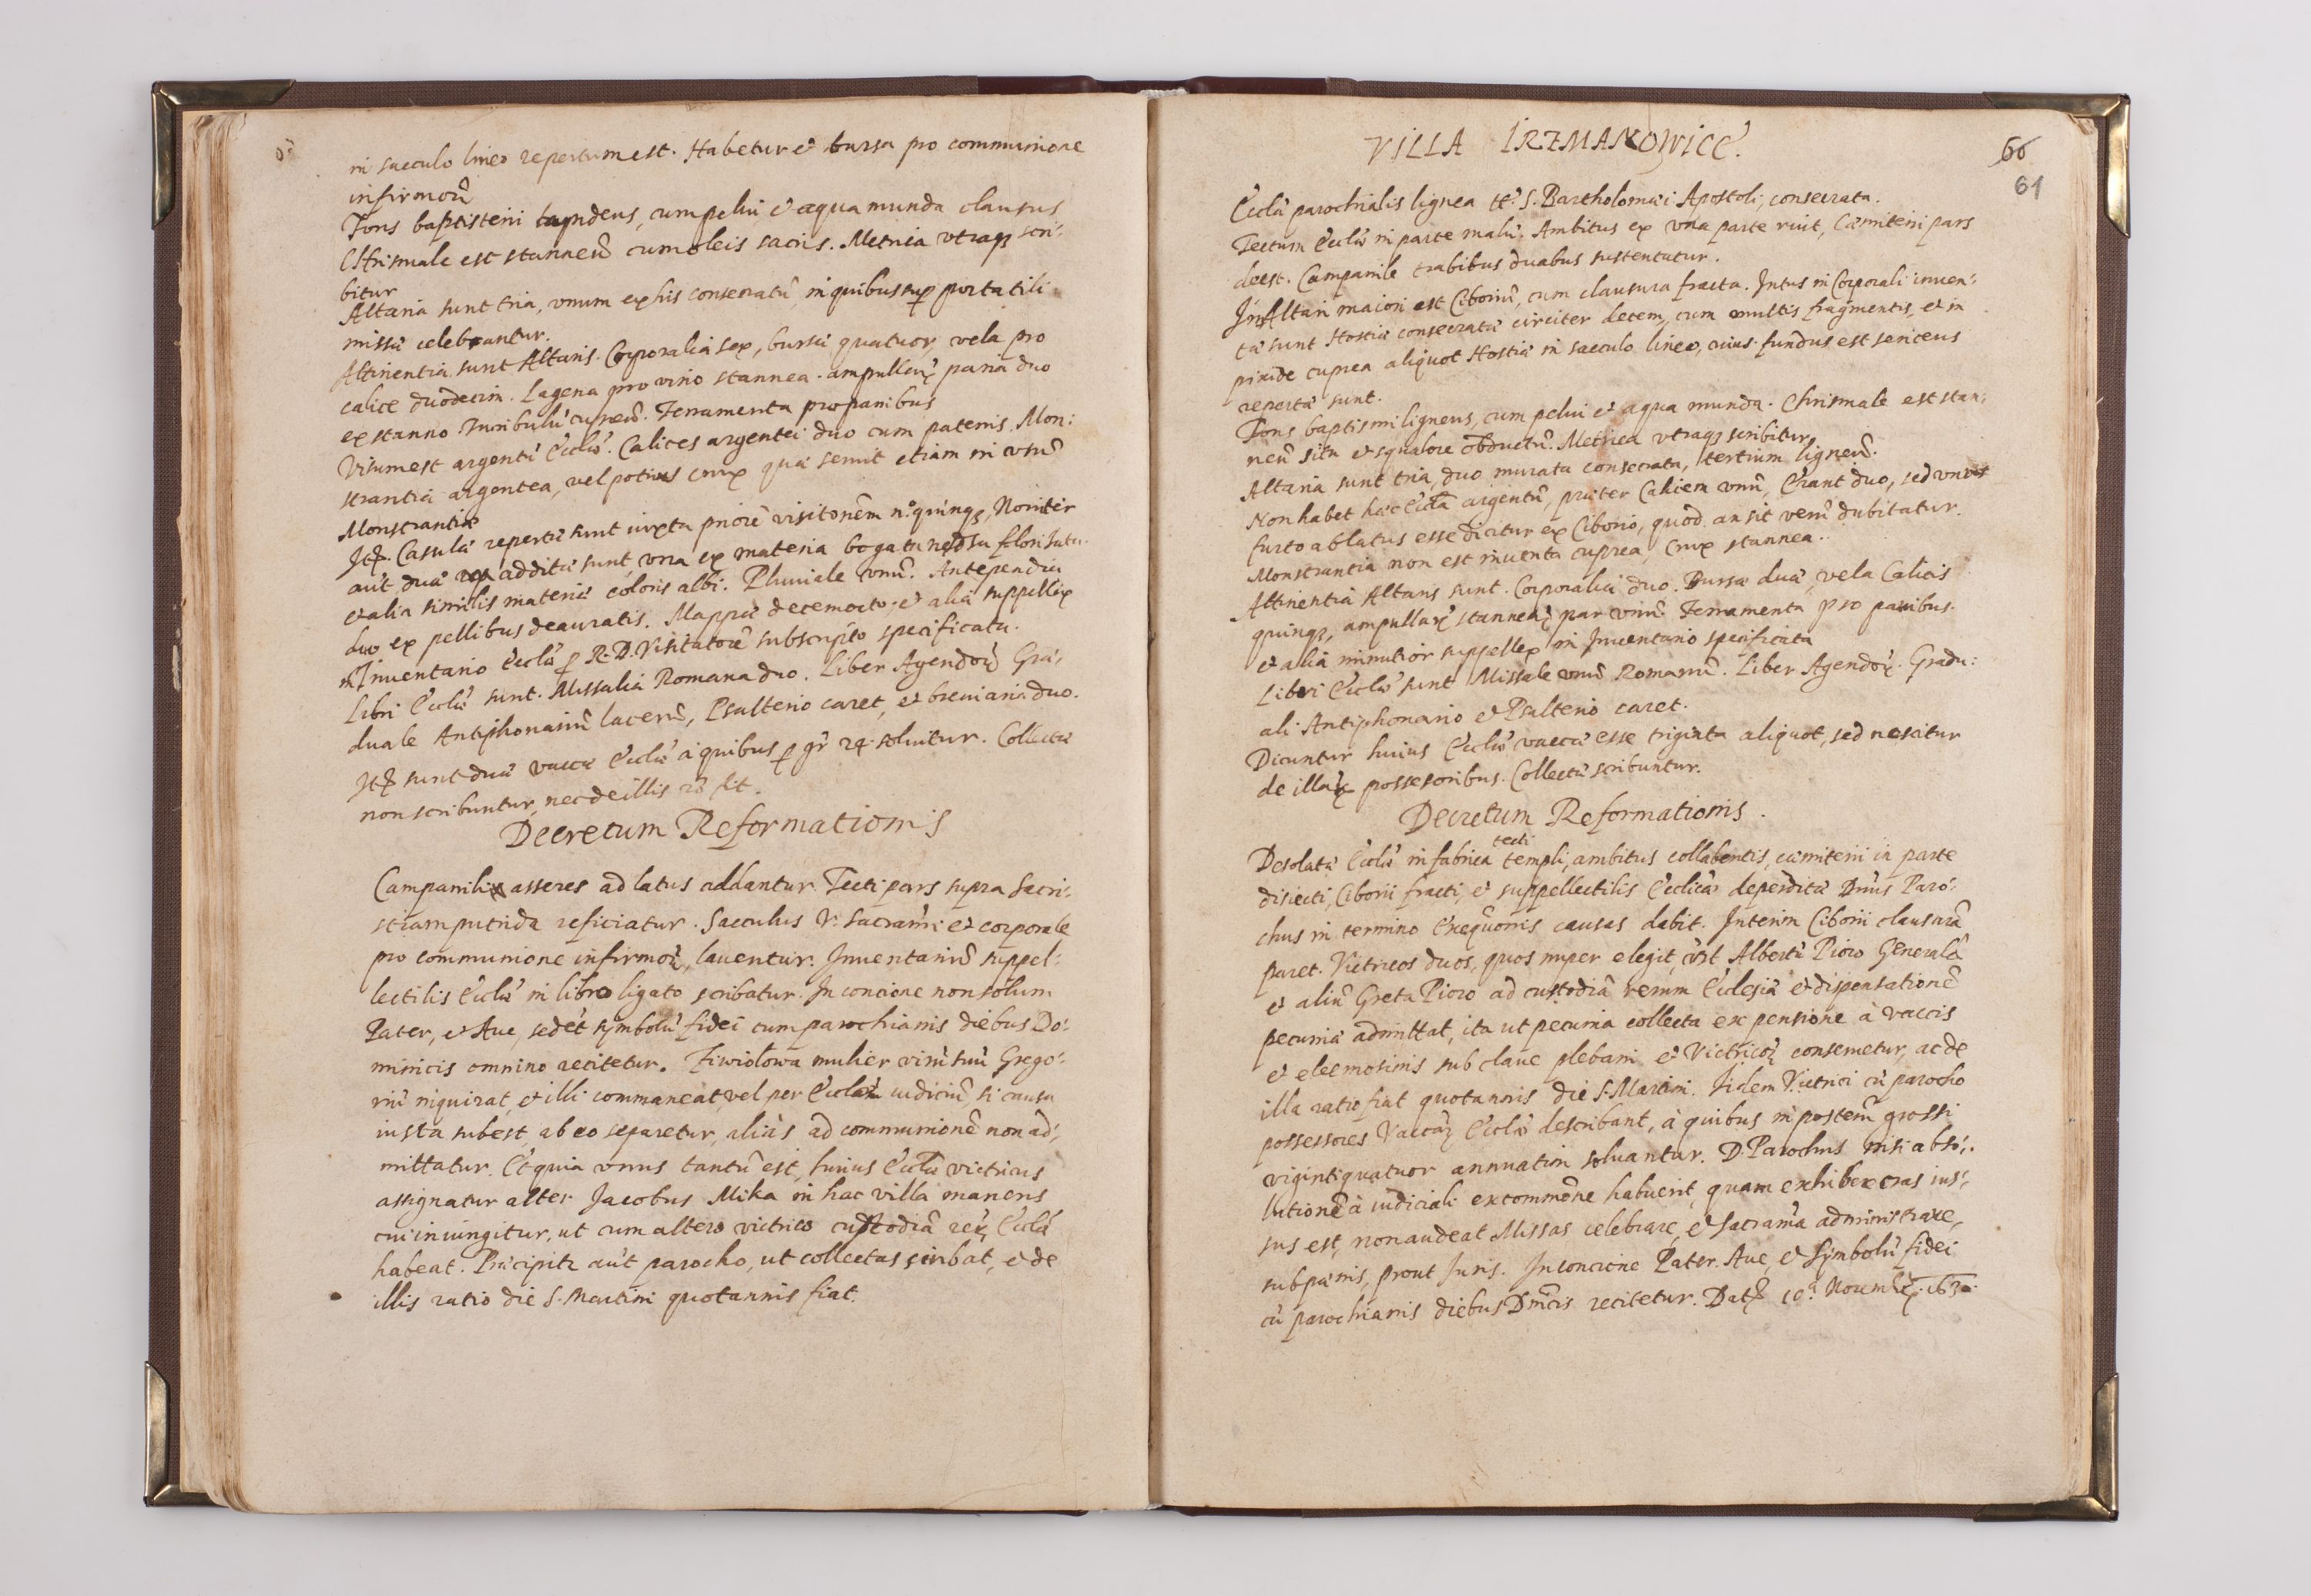 in sacculo lineo repertum est. Habetur et bursa pro communione
infirmorũ
Fons baptisterii lapideus, cum pelui et aqua munda clausus
Chrismale est stanneũ cum oleis sacris. Metrica vtraq3 scri:
bitur
Altaria sunt tria, vnum ex his consecratũ, in quibus sup portatili
missæ celebrantur.
Attinentia sunt Altaris. Corporalia sex, bursæ quatuor, vela pro
calice duodecim. Lagena pro vino stannea. ampullarũ paria duo
ex stanno Turibulũ cupreũ. Ferramenta pro panibus
Visum est argentũ Eccliæ. Calices argentei duo cum patenis. Mon:
strantia argentea, vel potius crux quæ seruit etiam in vsũ
Monstrantiæ
Itẽ. Casulæ repertæ sunt iuxta priorẽ visitonẽm n.º quinq3, Nouiter
aũt duæ additæ sunt vna ex materia bogata
et alia similis materiæ coloris albi. Pluuiale vnũ. Antependia
duo ex pellibus deauratis. Mappæ decem octo, et alia suppellex
in Inuentario Eccliæ p R. D. Visitatorẽ subscripto specificata.
Libri Eccliæ sunt. Missalia Romana duo. Liber Agendorũ Gra:
duale Antiphonariũ lacerũ, Psalterio caret, et breuiaria duo.
Itẽ sunt duæ vaccæ Eccliæ à quibus p gr 24 soluitur. Collectæ
non scribuntur, nec de illis rõ fit.
Decretum Reformationis
Campanili asseres ad latus addantur. Tecti pars supra Sacri:
stiam putrida reficiatur. Sacculus V. Sacram̃i et corporale
pro communione infirmorũ, lauentur. Inuentariũ suppel:
lectilis Eccliæ in libro ligato scribatur. In concione non solum
Pater, et Aue, sed et symbolũ fidei cum parochianis diebus Do:
minicis omnino recitetur. Fiwiołowa mulier virũ suũ Grego:
riũ inquirat, et illi commaneat, vel per Ecclæ iudiciũ, si causa
iusta subest, ab eo separetur, aliàs ad communionẽ non ad:
mittatur. Et quia vnus tantũ est, huius Eccliæ victricus
assignatur alter Jacobus Mika in hac villa manens
cui iniungitur, ut cum altero victrico custodiã rerũ Eccliæ
habeat. Præcipitr aũt parocho, ut collectas scribat, et de
illis ratio die S. Martini quotannis fiat.
VILLA IRZMANOWICE.
66
61
Eccliã parochialis lignea tt. S. Bartholomæi Apostoli, consecrata.
Tectum Eccliæ in parte malũ. Ambitus ex vna parte ruit, Cæmiterii pars
deest. Campanile trabibus duabus sustentatur.
In Altari maiori est Ciboriũ, cum clausura fracta. Intus in Corporali inuen:
tæ sunt Hostiæ consecratæ circiter decem, cum multis fragmentis, et in
pixide cuprea aliquot Hostiæ in sacculo lineo, cuius fundus est sericeus
repertæ sunt.
Fons baptismi ligneus, cum pelui et aqua munda. Chrismale est stan:
neũ situ et squalore obductũ. Metrica vtraq3 scribitur.
Altaria sunt tria, duo murata consecrata, tertium ligneũ.
Non habet hæc Eccliã argentũ, præter Calicem vnũ, Erant duo, sed vnus
furto ablatus esse dicitur ex Ciborio, quod an sit verũ dubitatur.
Monstrantia non est inuenta cuprea, Crux stannea.
Attinentia Altaris sunt. Corporalia duo. Bursæ duæ, vela Calicis
quinq3, ampullarũ stannearũ par vnũ. Ferramenta pro panibus.
et alia minutior suppellex in Inuentario specificata
Libri Eccliæ sunt Missale vnũ Romanũ. Liber Agendorũ. Gradu:
ali Antiphonario et Psalterio caret.
Dicuntur huius Eccliæ vaccæ esse triginta aliquot, sed nescitur
de illarũ possesoribus. Collectæ scribuntur.
Decretum Reformationis.
tecti
Desolatæ Eccliæ in fabrica templi, ambitus collabentis, cæmiterii in parte
disiecti, Ciborii fracti, et suppellectilis Eccliæ deperditæ Dñus Paro:
chus in termino Exequonis causas dabit. Interim Ciborii clausurã
paret. Victricos duos, quos nuper elegit, vst Albertũ Pioro Generalẽ
et aliũ Greta Pioro ad custodiã rerum Ecclesiæ et dispensationẽ
pecuniæ admittat, ita ut pecunia collecta ex pensione à vaccis
et eleemosinis sub claue plebani et Victricorũ conseruetur, ac de
illa ratio fiat quotannis die S. Martini. Iidem Victrici cũ parocho
possessores Vaccarũ Eccliæ describant, à quibus in posterũ grossi
viginti quatuor annuatim soluantur. D. Parochus nisi abso:
lutionẽ à iudiciali excommõne habuerit, quam exhibere cras ius:
sus est, non audeat Missas celebrare, et Sacram̃a administrare,
sub pænis, prout Iuris. In concione Pater. Aue, et Symbolũ fidei
cũ parochianis diebus Dñicis recitetur. Datũ 10.ª Nouembr. 1630.